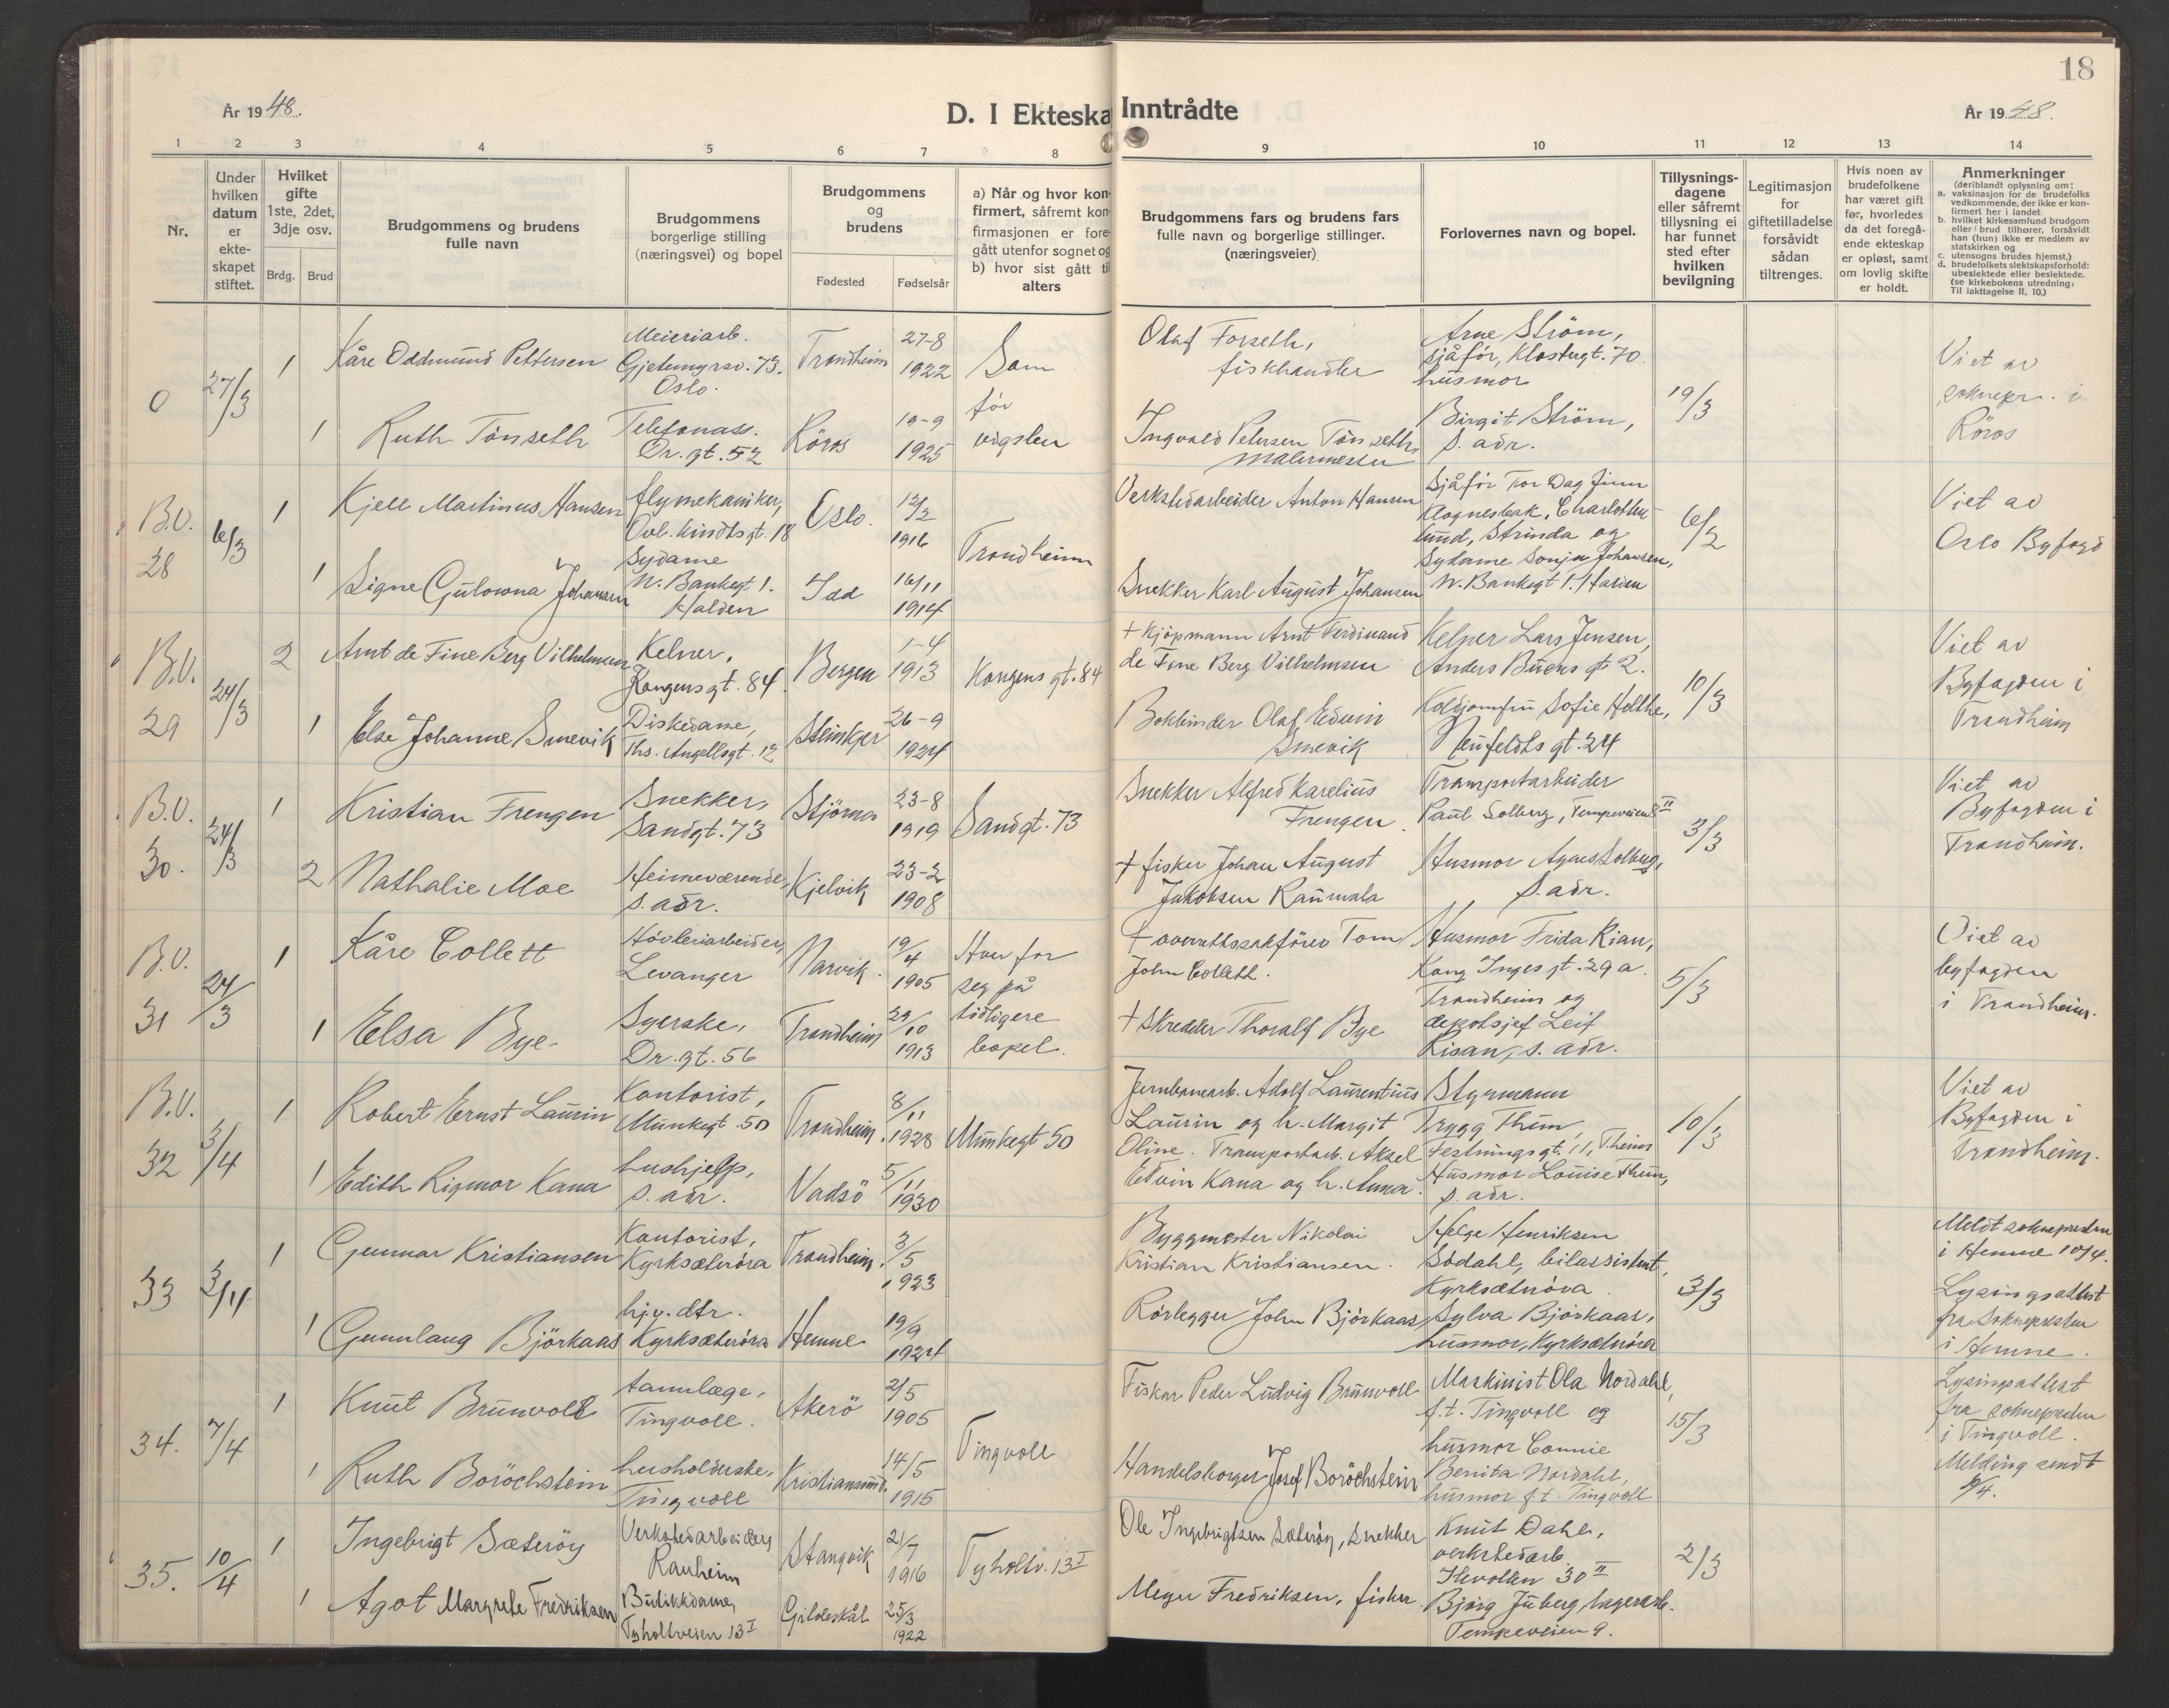 År 1948.
D. I Ekteska
1 2 3 4 5 6 7 8
Nr.
Under hvilken datum er ekte-skapet stiftet.
Hvilket gifte 1ste, 2det, 3dje osv.
Brdg. Brud
Brudgommens og brudens
fulle navn
Brudgommens
borgerlige stilling
(næringsvei) og bopel
Brudgommens
og
brudens
Fødested Fødselsår
a) Når og hvor kon-
firmert, såfremt kon-
firmasjonen er fore-
gått utenfor sognet og
b) hvor sist gått til
alters
0 27/3
1 Kåre Oddmund Pettersen
Meieriarb.
Gjetemyrsv. 73.
Oslo.
Trondheim
27-8
1922
Som
før
vigslen
1 Ruth Tönseth
Telefonass.
Dr. gt. 52
Röros
19-9
1925
B.V.
28
6/3
1 Kjell Martinus Hansen
flymekaniker,
18
Oslo.
12/2
1916
Trondheim
1 Signe Gulowna Johansen
Sydame
W. Bankegt 1.
Halden
Idd
16/11
1914
B.V.
29
24/3
2 Arnt de Fine Berg Vilhelmsen
Kelner,
Kongensgt. 84
Bergen
1-4
1913
Kongens gt. 84
1 Else Johanne Smevik
Diskedame,
Ths. Angellsgt. 12
Steinkjer
26-9
1924
B.V.
30.
24/3
1 Kristian Frengen
Snekker,
Sandgt. 73
Stjörna
23-8
1919
Sandgt. 73
2 Nathalie Moe
Heimeværende,
s. adr.
Kjelvik
23-2
1908
B.V.
31
24/3
1 Kåre Collett
Hövleriarbeider,
Levanger
Narvik.
19/4
1905
Hver for
seg på
tidligere
bopel.
1 Elsa Bye
Syerske,
Dr. gt. 56
Trondheim
29/10
1913
B.V.
32
3/4
1 Robert Ernst Laurin
Kontorist,
Munkegt. 50
Trondheim.
8/11
1928
Munkegt 50
1 Edith Rigmor Kana
hushjelp,
s. adr.
Vadsö
5/11
1930
33
3/4
1 Gunnar Kristiansen
Kontorist,
Kyrksæteröra
Trondheim.
3/5
1923
1 Gunnlaug Björkaas
hjv. dtr.
Kyrksæteröra
Hemne
19/9
1924
34.
7/4
1 Knut Brunvoll
tannlæge,
Tingvoll.
Akerö
2/5
1905
Tingvoll
1 Ruth Boröchstein
husholderske,
Tingvoll
Kristiansund.
14/5
1915
35.
10/4
1 Ingebrigt Sæteröy
Verkstedarbeider,
Ranheim
Stangvik
21/7
1916
Tyholtv. 13 I
1 Agot Margrethe Fredriksen
Butikkdame,
Tyholtveien 13 I
Gildeskål
25/3
1922
18
Inntrådte
År 1948.
9 10 11 12 13 14
Brudgommens fars og brudens fars
fulle navn og borgerlige stillinger.
(næringsveier)
Forlovernes navn og bopel.
Tillysnings-
dagene
eller såfremt
tillysning ei
har funnet
sted efter
hvilken
bevilgning
Legitimasjon
for
giftetilladelse
forsåvidt
sådan
tiltrenges.
Hvis noen av
brudefolkene
har været gift
før, hvorledes
da det foregå-
ende ekteskap
er opløst, samt
om lovlig skifte
er holdt.
Anmerkninger
(deriblandt oplysning om:
a. vaksinasjon for de brudefolks
vedkommende, der ikke er kon-
firmert her i landet
b. hvilket kirkesamfund brudgom
eller i brud tilhører, forsåvidt
han (hun) ikke er medlem av
statskirken og
c. utensogns brudes hjemst.)
d. brudefolkets slektskapsforhold:
ubeslektede eller beslektede.
(se kirkebokens utredning:
Til iakttagelse II, 10.)
Olaf Forseth,
fiskhandler
Arne Ström,
sjåför, Klostergt. 70.
husmor
19/3
Viet av
soknepr. i
Röros
Ingvald Petersen Tönseth,
malermester
Birgit Ström,
s. adr.
Verkstedarbeider Anton Hansen
Sjåför Tor Dag Finn
Charlotten-
lund, Strinda og
6/2
Viet av
Oslo Byfogd
Snekker Karl August Johansen
Sydame Sonja Johansen,
W. Bankegt 1. Halden
+ Kjöpmann Arnt Ferdinand
de Fine Berg Vilhelmsen
Kelner Lars Jensen,
Anders Buens gt 2.
10/3
Viet av
Byfogden i
Trondheim
Bokbinder Olaf Edvin
Smevik
Koldjomfru Sofie Holthe,
Neufeldts gt. 24
Snekker Alfred Karelius
Frengen.
Transportarbeider
Paul Solberg, Tempeveien 8 II
3/3
Viet av
Byfogden i
Trondheim.
+ fisker Johan August
Jakobsen Raumala
Husmor Agnes Solberg,
s. adr.
+ overrettssakförer Tom
John Collett.
Husmor Frida Risan,
Kong Inges gt. 29a.
Trondheim og
5/3
Viet av
byfogden
i Trondheim.
+ Skredder Thoralf Bye
depotsjef Leif
Risan, s. adr.
Jernbanearb. Adolf Laurentius
Laurin og h. Margit
Oline. Transportarb. Aksel
Edvin Kana og h. Anna.
Styrmann
Trygg Thun,
Festningsgt. 11, Theim
Husmor Louise Thun,
s. adr.
10/3
Viet av
Byfogden i
Trondheim.
Byggmester Nikolai
Kristian Kristiansen.
Helge Henriksen
Södahl, bilassistent,
Kyrksæteröra.
3/3
Meldt soknepresten
i Hemne 10/4.
Lysingsattest
fra Sokneprestен
i Hemne.
Rörlegger John Björkaas
Sylva Björkaas,
husmor, Kyrksæteröra
Fisker Peder Ludvig Brunvoll
Maskinist Ola Nordahl,
f.t. Tingvoll og
husmor Connie
15/3
Lysingsattest
fra soknepresten
i Tingvoll.
Melding sendt
Handelsborger Josef Boröchstein
Benita Nordahl,
husmor f.t. Tingvoll
Ole Ingebrigtsen Sæteröy, snekker
Knut Dahl,
verkstedarb.
Ilevollen 30 II
2/3
Meyer Fredriksen, fisker.
Bjørg Juberg lagerarb.
Tempeveien 9.